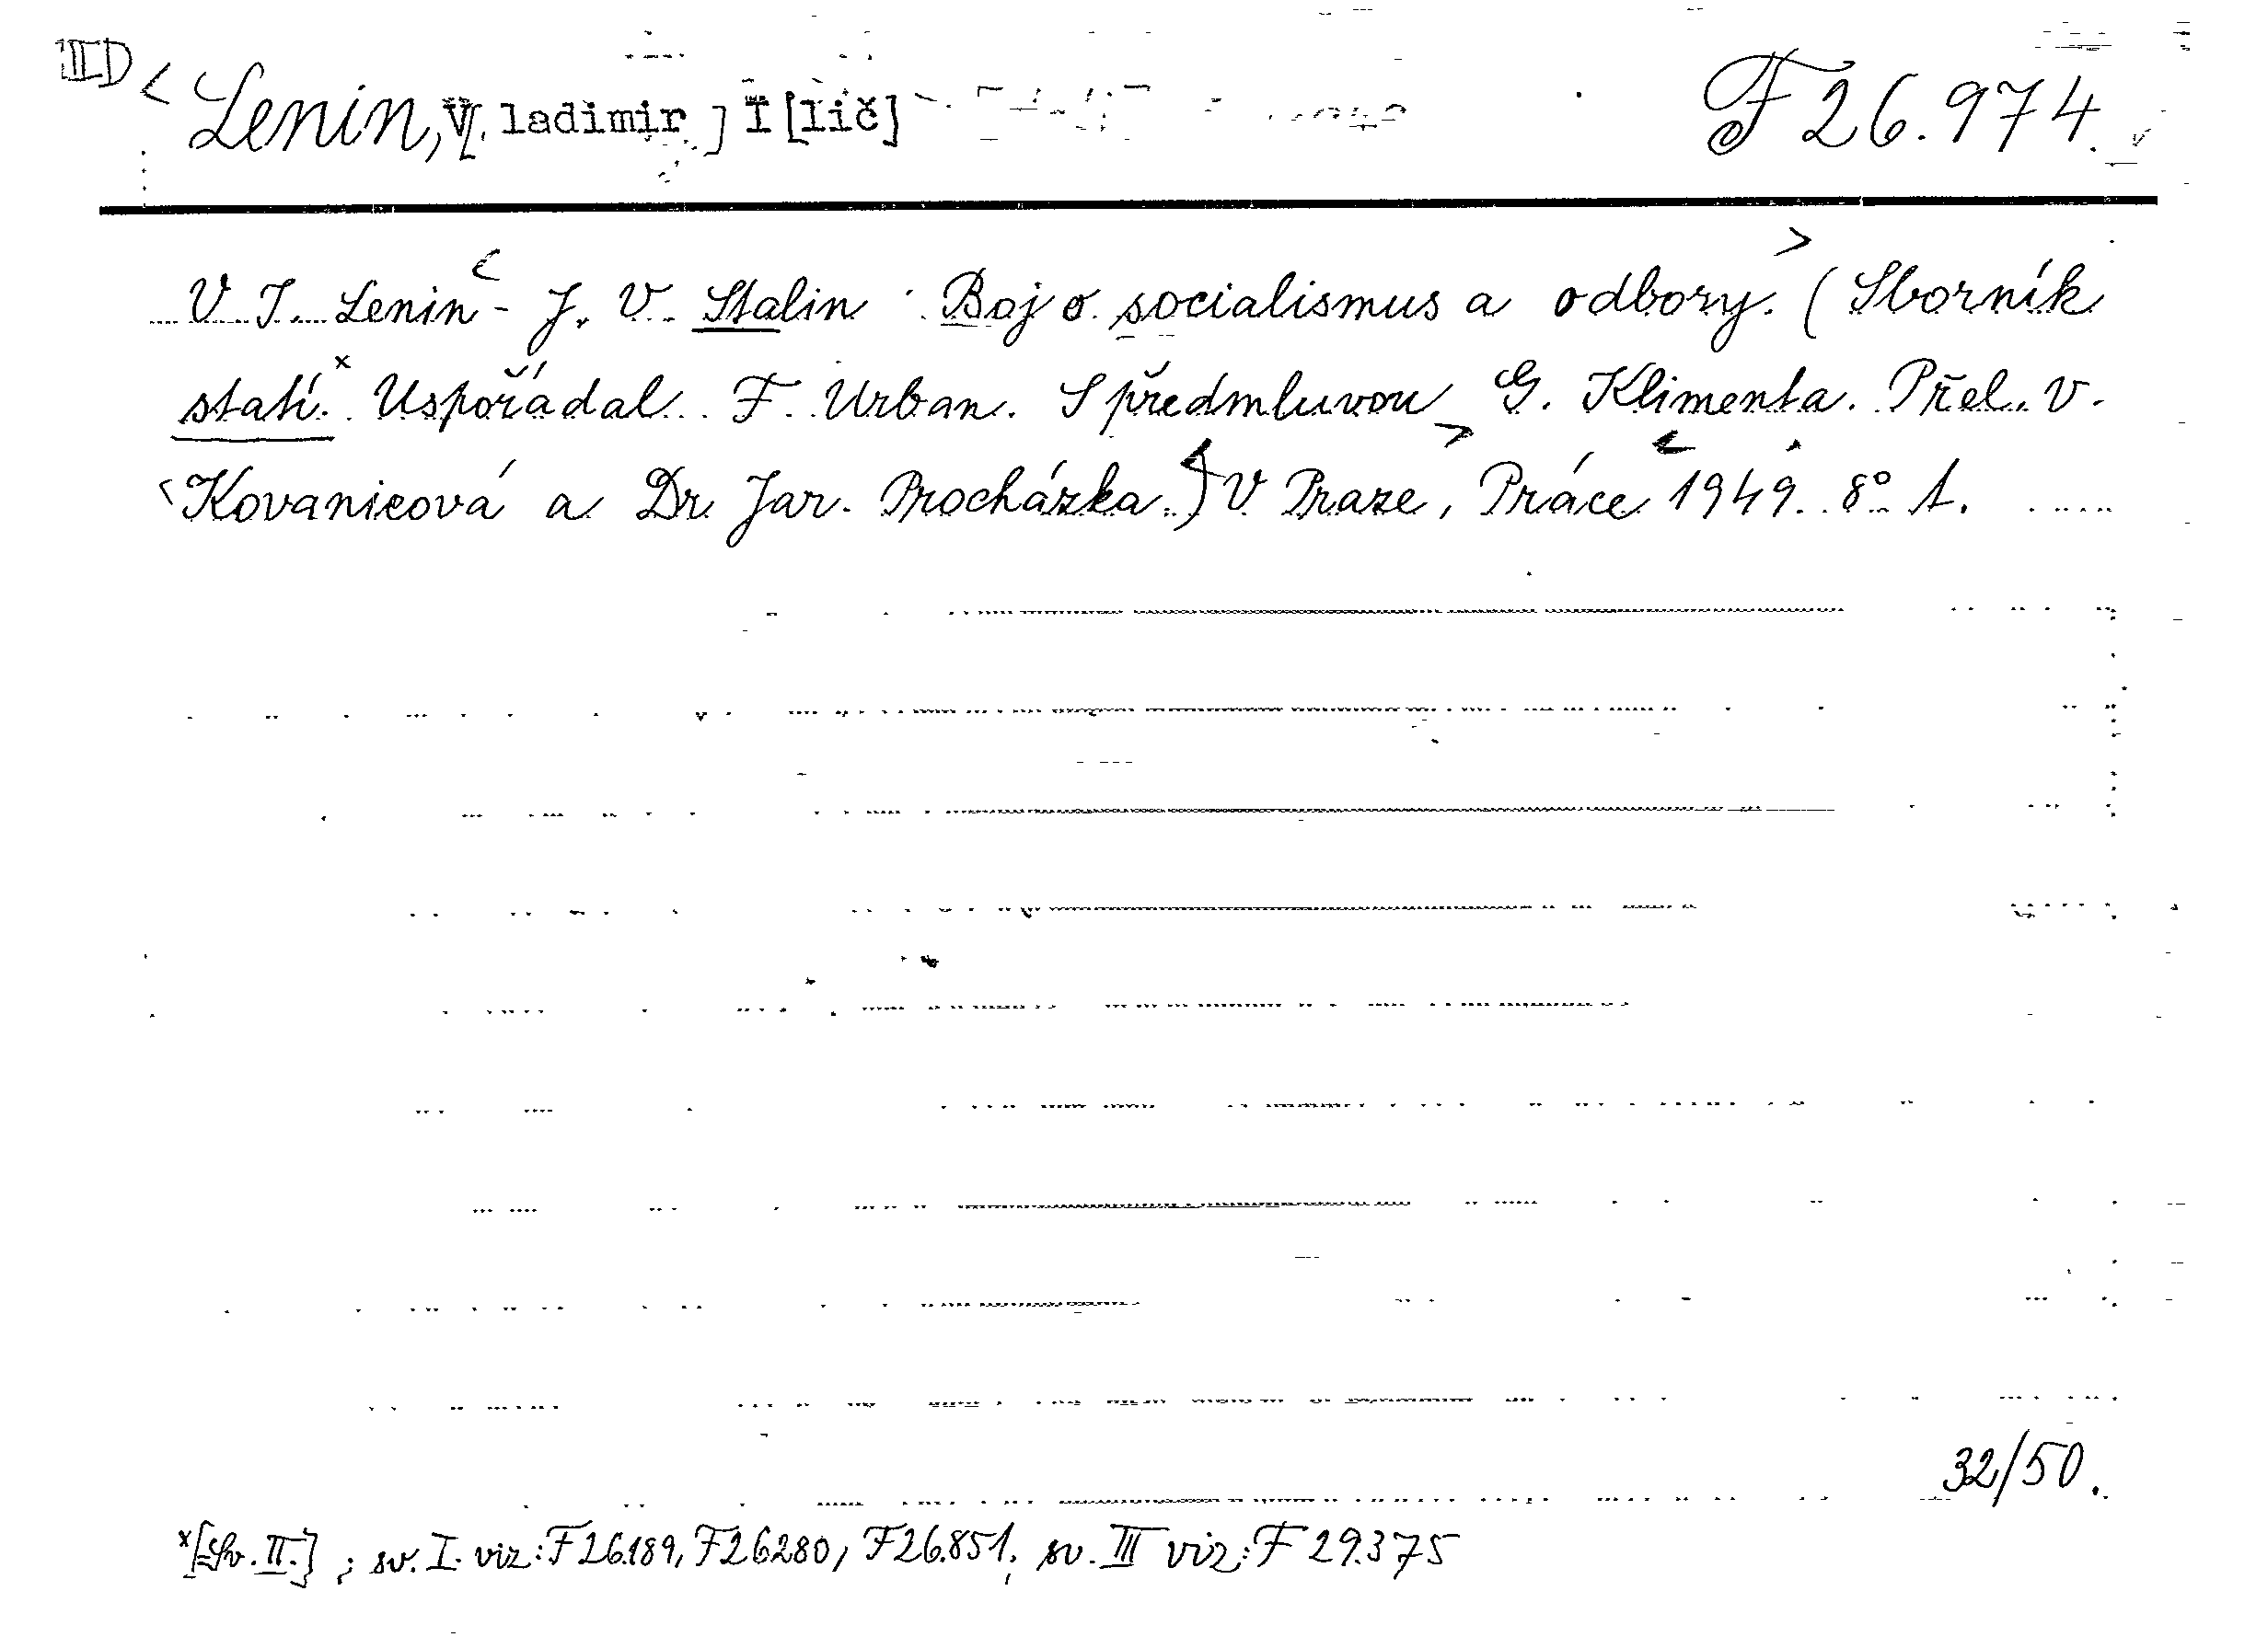 IID < Lenin, V[ladimir] I[lič] F 26.974.
V. I. Lenin - J. V. Stalin: Boj o socialismus a odbory. (Sborník
statí.x Uspořádal F. Urban. S předmluvou G. Klimenta. Přel. V.
Kovanicová a Dr. Jar. Procházka.) V Praze, Práce 1949. 8° 1.
32/50.
x[Sv. II.]; sv. I. viz: F 26.189, F 26280, F 26.851; sv. III viz: F 29.375